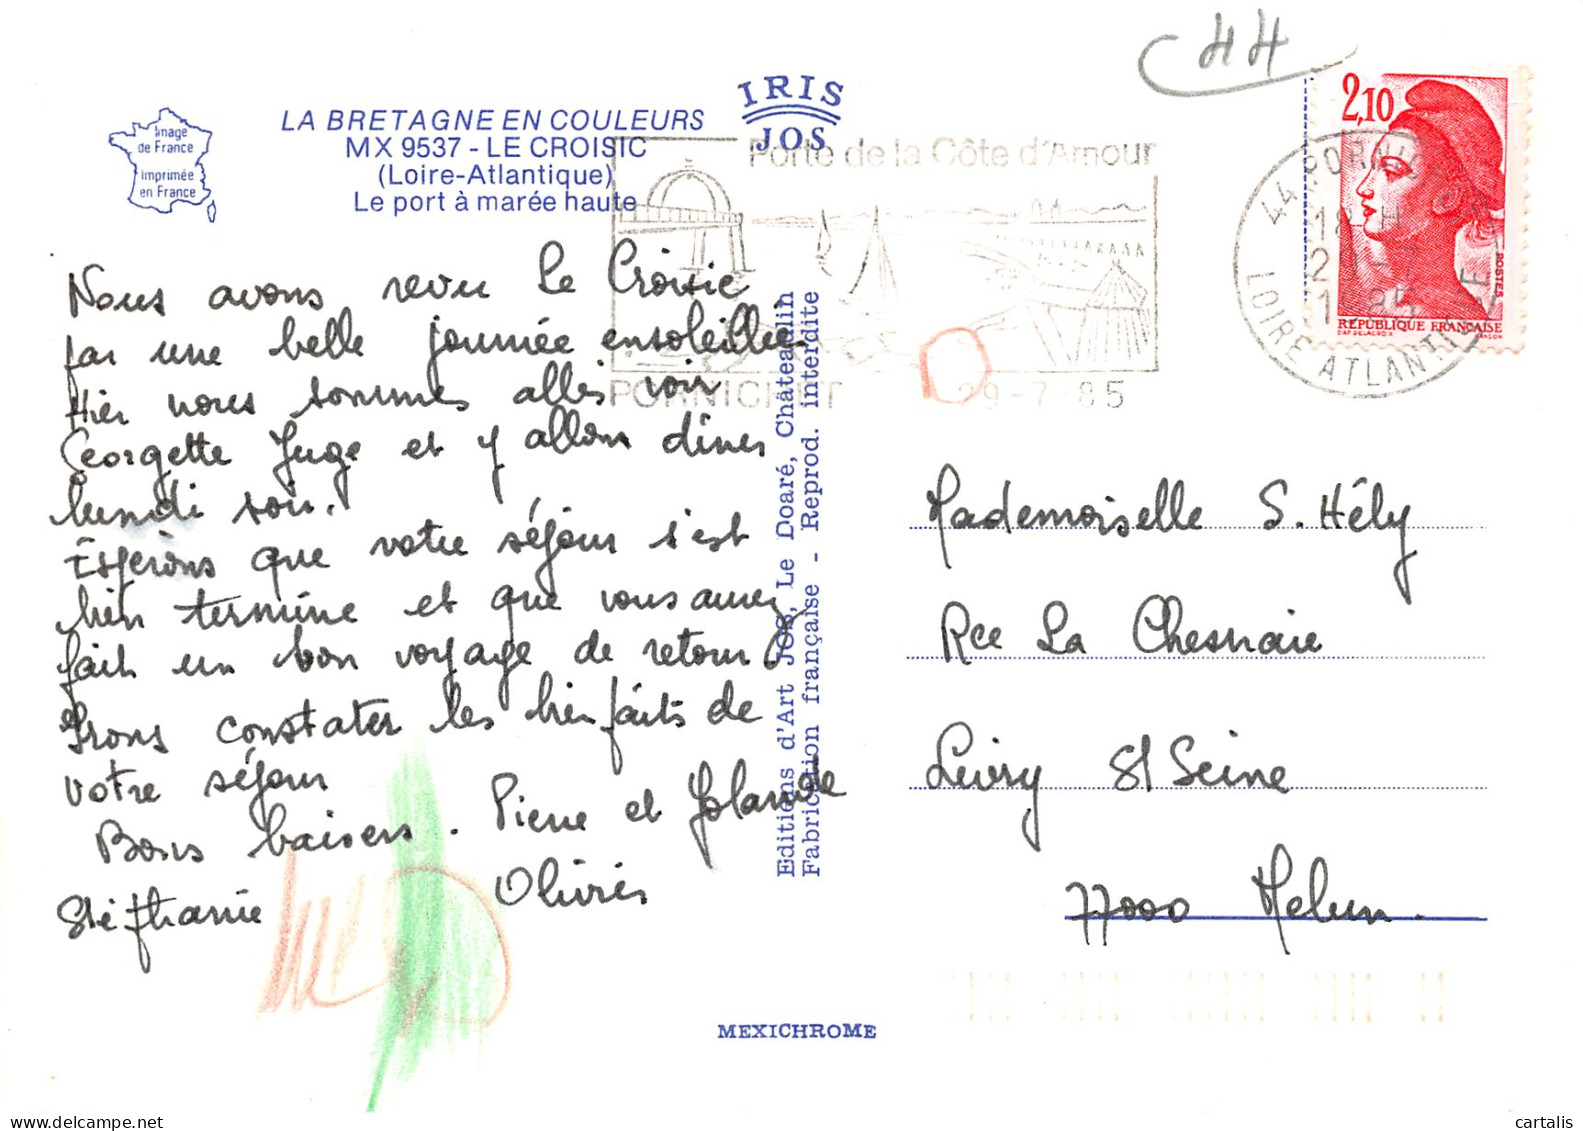 44
IRIS
JOS
Image
de France
Imprimée
en France
LA BRETAGNE EN COULEURS
MX 9537 - LE CROISIC
(Loire-Atlantique)
Le port à marée haute
Porte de la Côte d'Amour
PORNICHET 29-7-85
44 PORNIC
18 H
2
1 85
LOIRE ATLANTIQUE
2,10
POSTES
RÉPUBLIQUE FRANÇAISE
D'AP. DELACROIX
Nous avons revu Le Croisic
par une belle journée ensoleillée
Hier nous sommes allés voir
Georgette Juge et y allons diner
lundi soir.
Espérons que votre séjour s'est
bien terminé et que vous avez
fait un bon voyage de retour.
Irons constater les bienfaits de
votre séjour
Bons baisers. Pierre et Yolande
Stéphanie Olivier
Editions d'Art JOS, Le Doaré, Châteaulin
Fabrication française - Reprod. interdite
Mademoiselle S. Hély
Rce La Chesnaie
Livry S/ Seine
77000 Melun.
MEXICHROME
cartalis